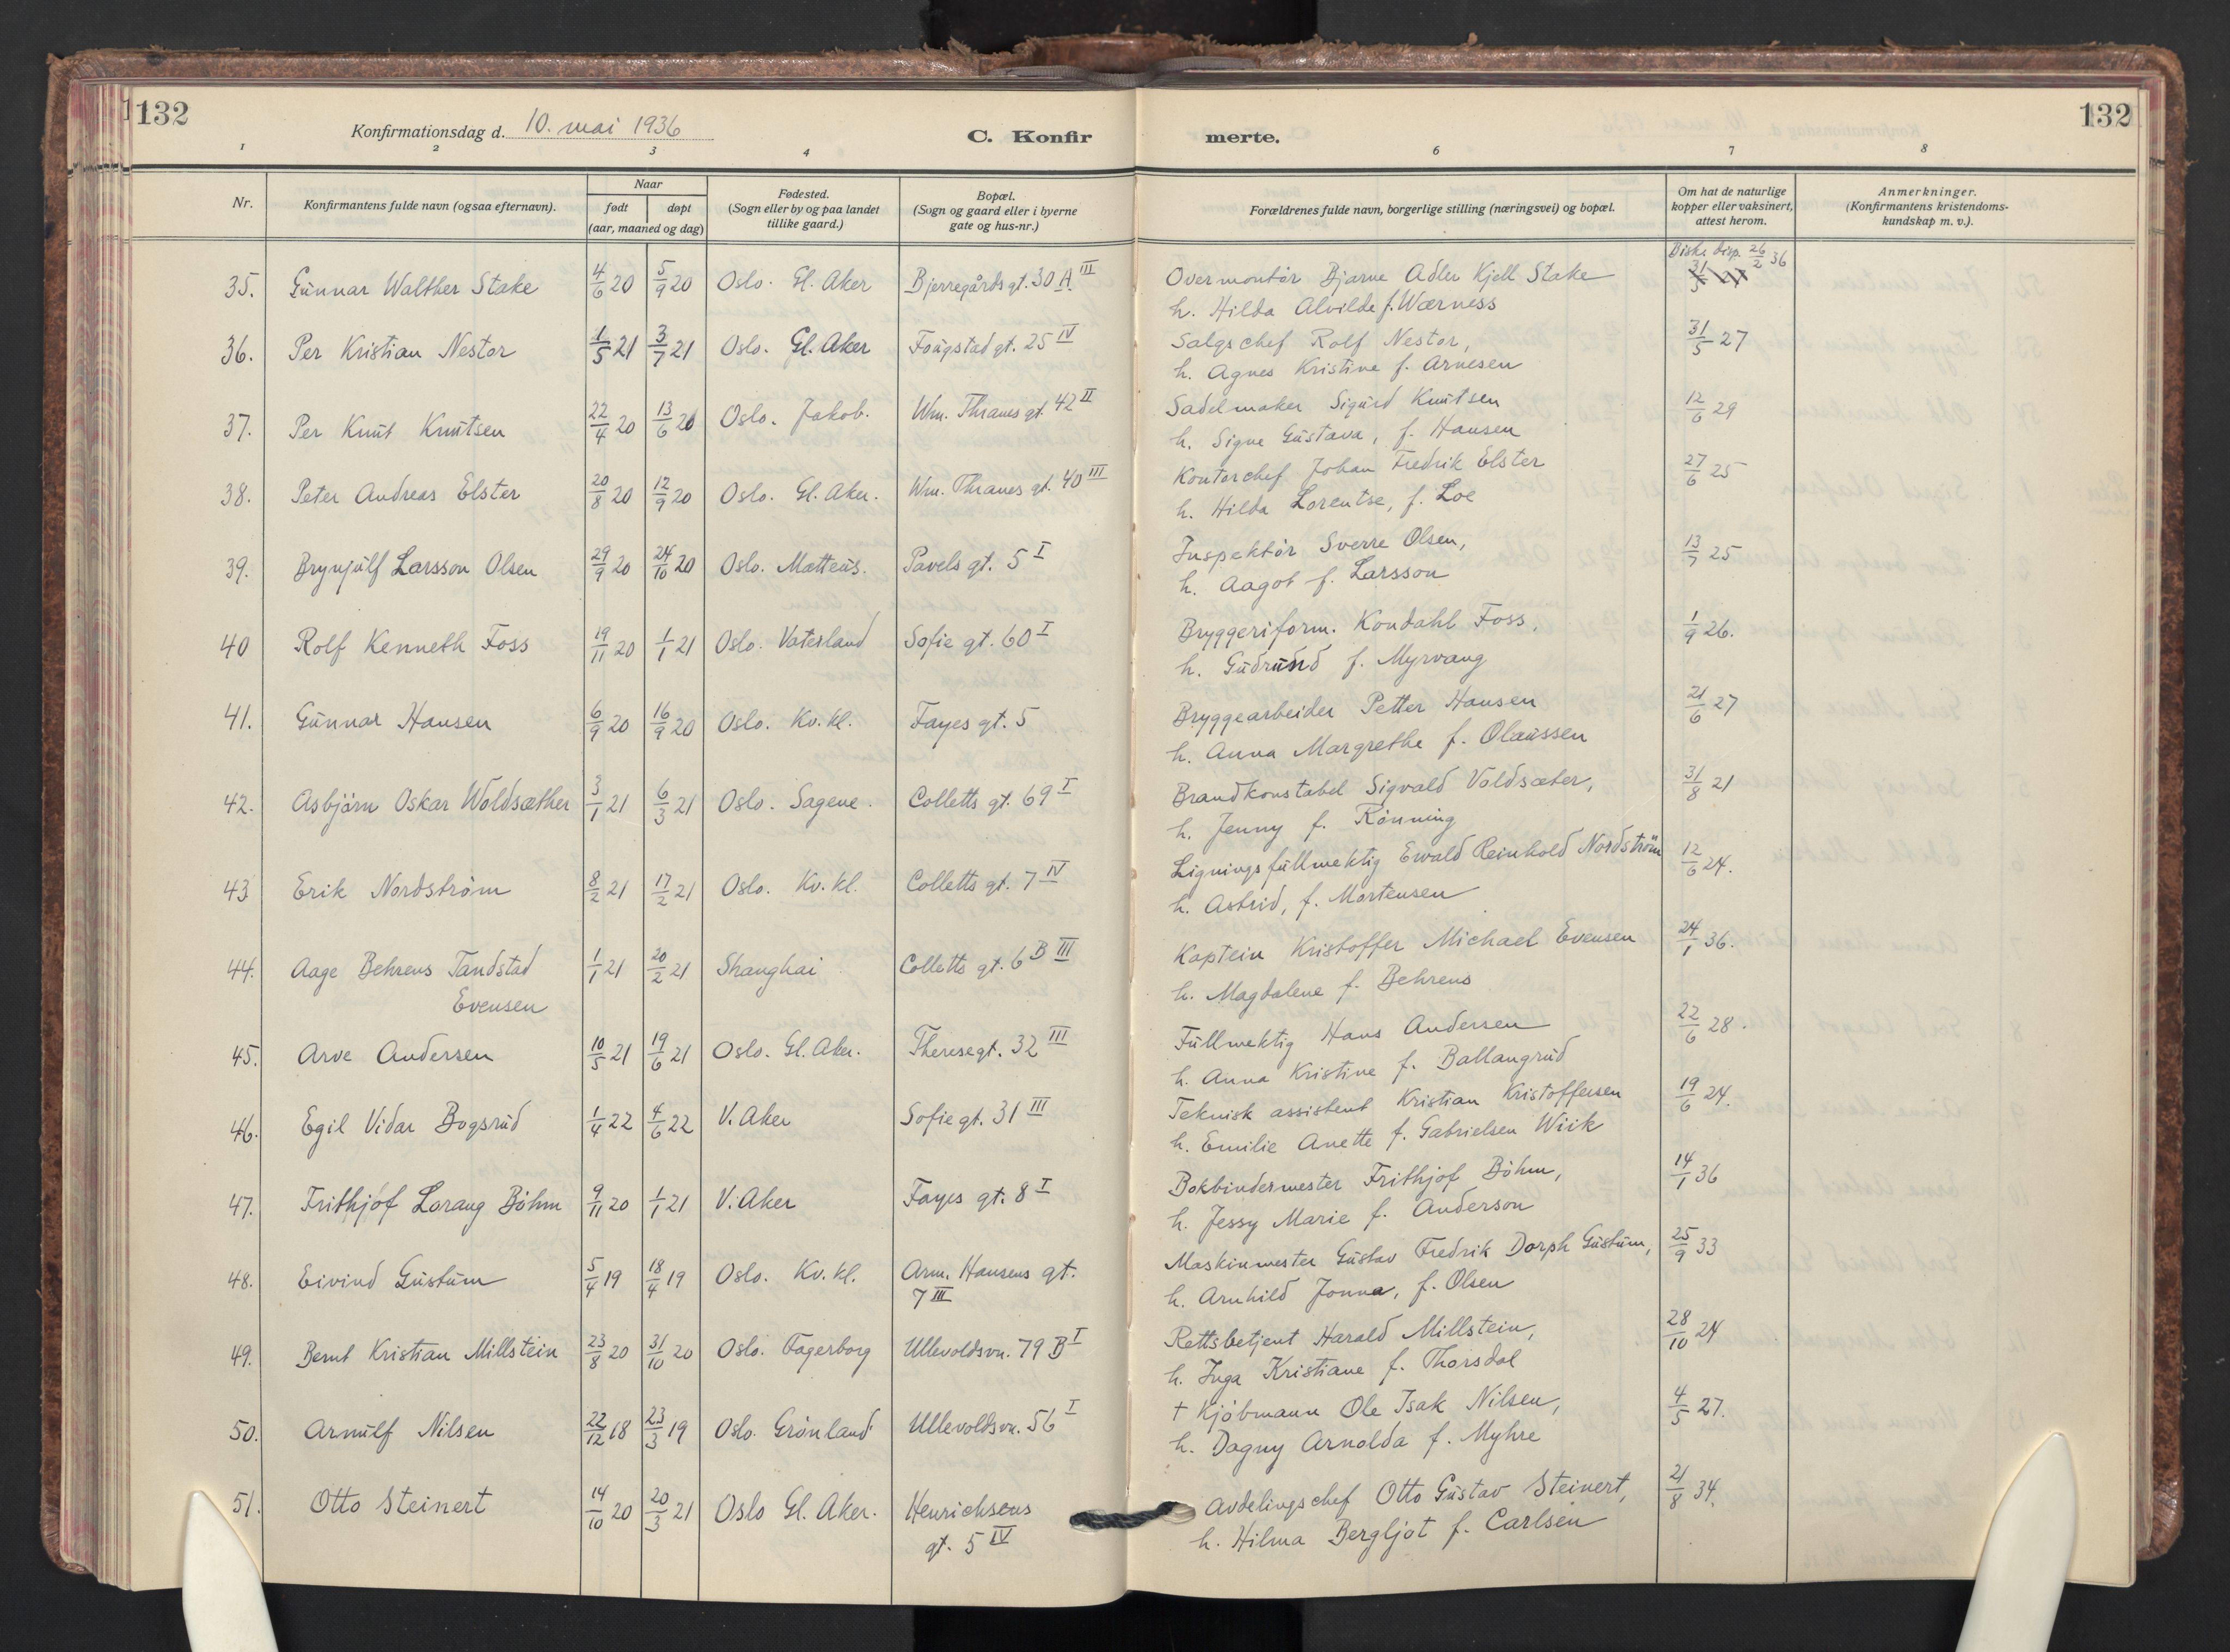 132
Konfirmationsdag d. 10. mai 1936
C. Konfirmerte.
132
1 2 3 4 6 7 8
Nr.
Konfirmantens fulde navn (ogsaa efternavn).
Naar
født døpt
(aar, maaned og dag)
Fødested.
(Sogn eller by og paa landet
tillike gaard.)
Bopæl.
(Sogn og gaard eller i byerne
gate og hus-nr.)
Forældrenes fulde navn, borgerlige stilling (næringsvei) og bopæl.
Om hat de naturlige
kopper eller vaksinert,
attest herom.
Anmerkninger.
(Konfirmantens kristendoms-
kundskap m. v.).
Biske. disp. 26/2 36
35. Gunnar Walther Stake 4/6 20 5/9 20 Oslo. Gl. Aker Bjerregårds gt. 30 A III Overmontør Bjarne Adler Kjell Stake 31/5 27
h. Hilda Alvilde f. Wærness
36. Per Kristian Nestor 1/5 21 3/7 21 Oslo. Gl. Aker Fougstad gt. 25 IV Salgschef Rolf Nestor, 31/5 27
h. Agnes Kristine f. Arnesen
37. Per Knut Knutsen 22/4 20 13/6 20 Oslo. Jakob. Wm. Thranes gt. 42 II Sadelmaker Sigurd Knutsen 12/6 29
h. Signe Gustava, f. Hansen
38. Peter Andreas Elster 20/8 20 12/9 20 Oslo. Gl. Aker. Wm. Thranes gt. 40 III Kontorchef Johan Fredrik Elster 27/6 25
h. Hilda Lorentse, f. Loe
39. Brynjulf Larsson Olsen 29/9 20 24/10 20 Oslo. Matteus. Pavels gt. 5 I Inspektør Sverre Olsen, 13/7 25
h. Aagot f. Larsson
40 Rolf Kenneth Foss 19/11 20 1/1 21 Oslo. Vaterland Sofie gt. 60 I Bryggeriform. Kondahl Foss, 1/9 26.
h. Gudrund f. Myrvang
41. Gunnar Hansen 6/9 20 16/9 20 Oslo. Kv. kl. Fayes gt. 5 Bryggearbeider Petter Hansen 21/6 27
h. Anna Margrethe f. Olaussen
42. Asbjørn Oskar Woldsæther 3/1 21 6/3 21 Oslo. Sagene. Colletts gt. 69 I Brandkonstabel Sigvald Voldsæter, 31/8 21
h. Jenny f. Rønning
43 Erik Nordstrøm 8/2 21 17/2 21 Oslo. Kv. kl. Colletts gt. 7 IV Ligningsfullmektig Ewald Reinhold Nordström 12/6 24.
h. Astrid, f. Mortensen
44. Aage Behrens Tandstad 1/1 21 20/2 21 Shanghai Colletts gt. 6 B III Kaptein Kristoffer Michael Evensen 24/1 36.
Evensen h. Magdalene f. Behrens
45. Arve Andersen 10/5 21 19/6 21 Oslo. Gl. Aker. Theresegt. 32 III Fullmektig Hans Andersen 22/6 28.
h. Anna Kristine f. Ballangrud
46. Egil Vidar Bogsrud 1/4 22 4/6 22 V. Aker Sofie gt. 31 III Teknisk assistent Kristian Kristoffersen 19/6 24.
h. Emilie Anette f. Gabrielsen Wiik
47. Frithjof Lorang Bøhm 9/11 20 1/1 21 V. Aker Fayes gt. 8 I Bokbindermester Frithjof Bøhm, 14/1 36
h. Jessy Marie f. Anderson
48. Eivind Gustum 5/4 19 18/4 19 Oslo. Kv. kl. Arm. Hansens gt. Maskinmester Gustav Fredrik Dorph Gustum, 25/9 33
7 III h. Arnhild Jonna, f. Olsen
49. Bernt Kristian Millstein 23/8 20 31/10 20 Oslo. Fagerborg Ullevoldsvn. 79 B I Rettsbetjent Harald Millstein, 28/10 24
h. Inga Kristiane f. Thorsdal
50. Arnulf Nilsen 22/12 18 23/3 19 Oslo. Grønland Ullevoldsvn. 56 I † Kjøbmann Ole Isak Nilsen, 4/5 27.
h. Dagny Arnolda f. Myhre
51. Otto Steinert 14/10 20 20/3 21 Oslo Gl. Aker. Henrichsens Avdelingschef Otto Gustav Steinert, 21/8 34.
gt. 5 IV h. Hilma Bergljot f. Carlsen